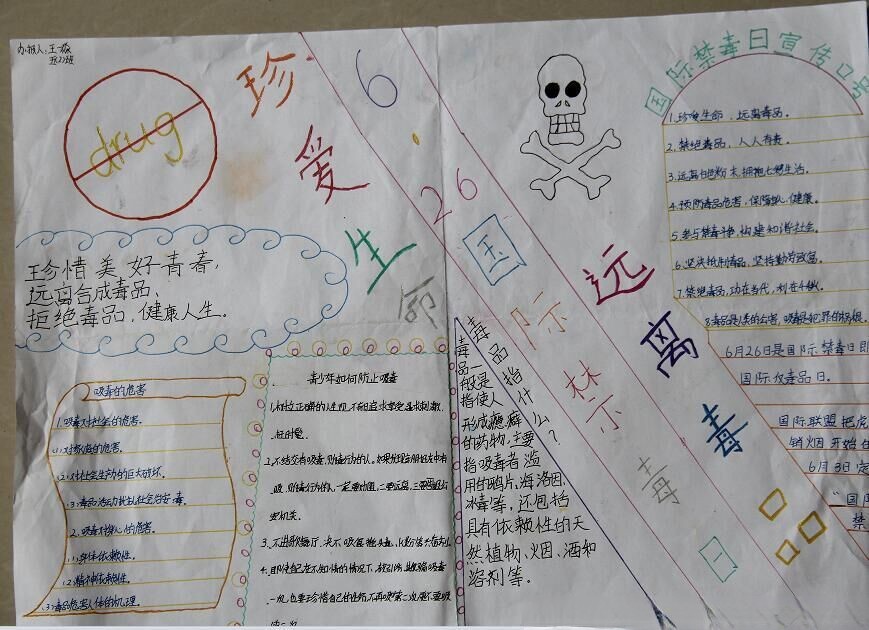 办报人:王一
drug
珍爱生命
远离毒
6 26 国际禁毒日
国际禁毒日宣传口号
珍惜美好青春,
远离合成毒品、
拒绝毒品,健康人生。
吸毒的危害
1.吸毒对社会的危害。
⑴对家庭的危害。
⑵对社会生产力的巨大破坏。
⑶毒品活动扰乱社会治安
2.吸毒对身心的危害。
⑴身体依赖性。
⑵精神依赖性。
⑶毒品危害人体的机理。
青少年如何防止吸毒
1、树立正确的人生观,不盲目追求享受,寻求刺激,
赶时髦。
2、不结交有吸毒、贩毒行为的人。如果发现亲朋好友中有
吸、贩毒行为的人,一定要劝阻,二要远离,三要
安机关。
3、不进歌舞厅,决不吸食摇头丸、K粉
4、即使自己在不知情的情况下,被引诱、欺骗吸毒
一次,也要珍惜自己的生命,不再吸第二次,更不要吸
第三次
毒品指什么?
毒品一般是
指使人
形成瘾癖
的药物,主要
指吸毒者滥
用的鸦片,海洛因、
冰毒等,还包括
具有依赖性的天
然植物、烟、酒和
溶剂等.
1.珍爱生命,远离毒品。
2.禁绝毒品,人人有责。
3.远离白色粉末,拥抱七彩生活。
4.预防毒品危害,保障 健康。
5.参与禁毒斗争,构建和谐社会。
6.坚决抵制毒品,坚持勤劳致富。
7.禁绝毒品,功在当代,利在千秋。
8.毒品是人类的公害,吸毒是犯罪的根源。
6月26日是国际禁毒日即
国际反毒品日。
国际联盟把虎
销烟开始
6月3日定
"国际
禁